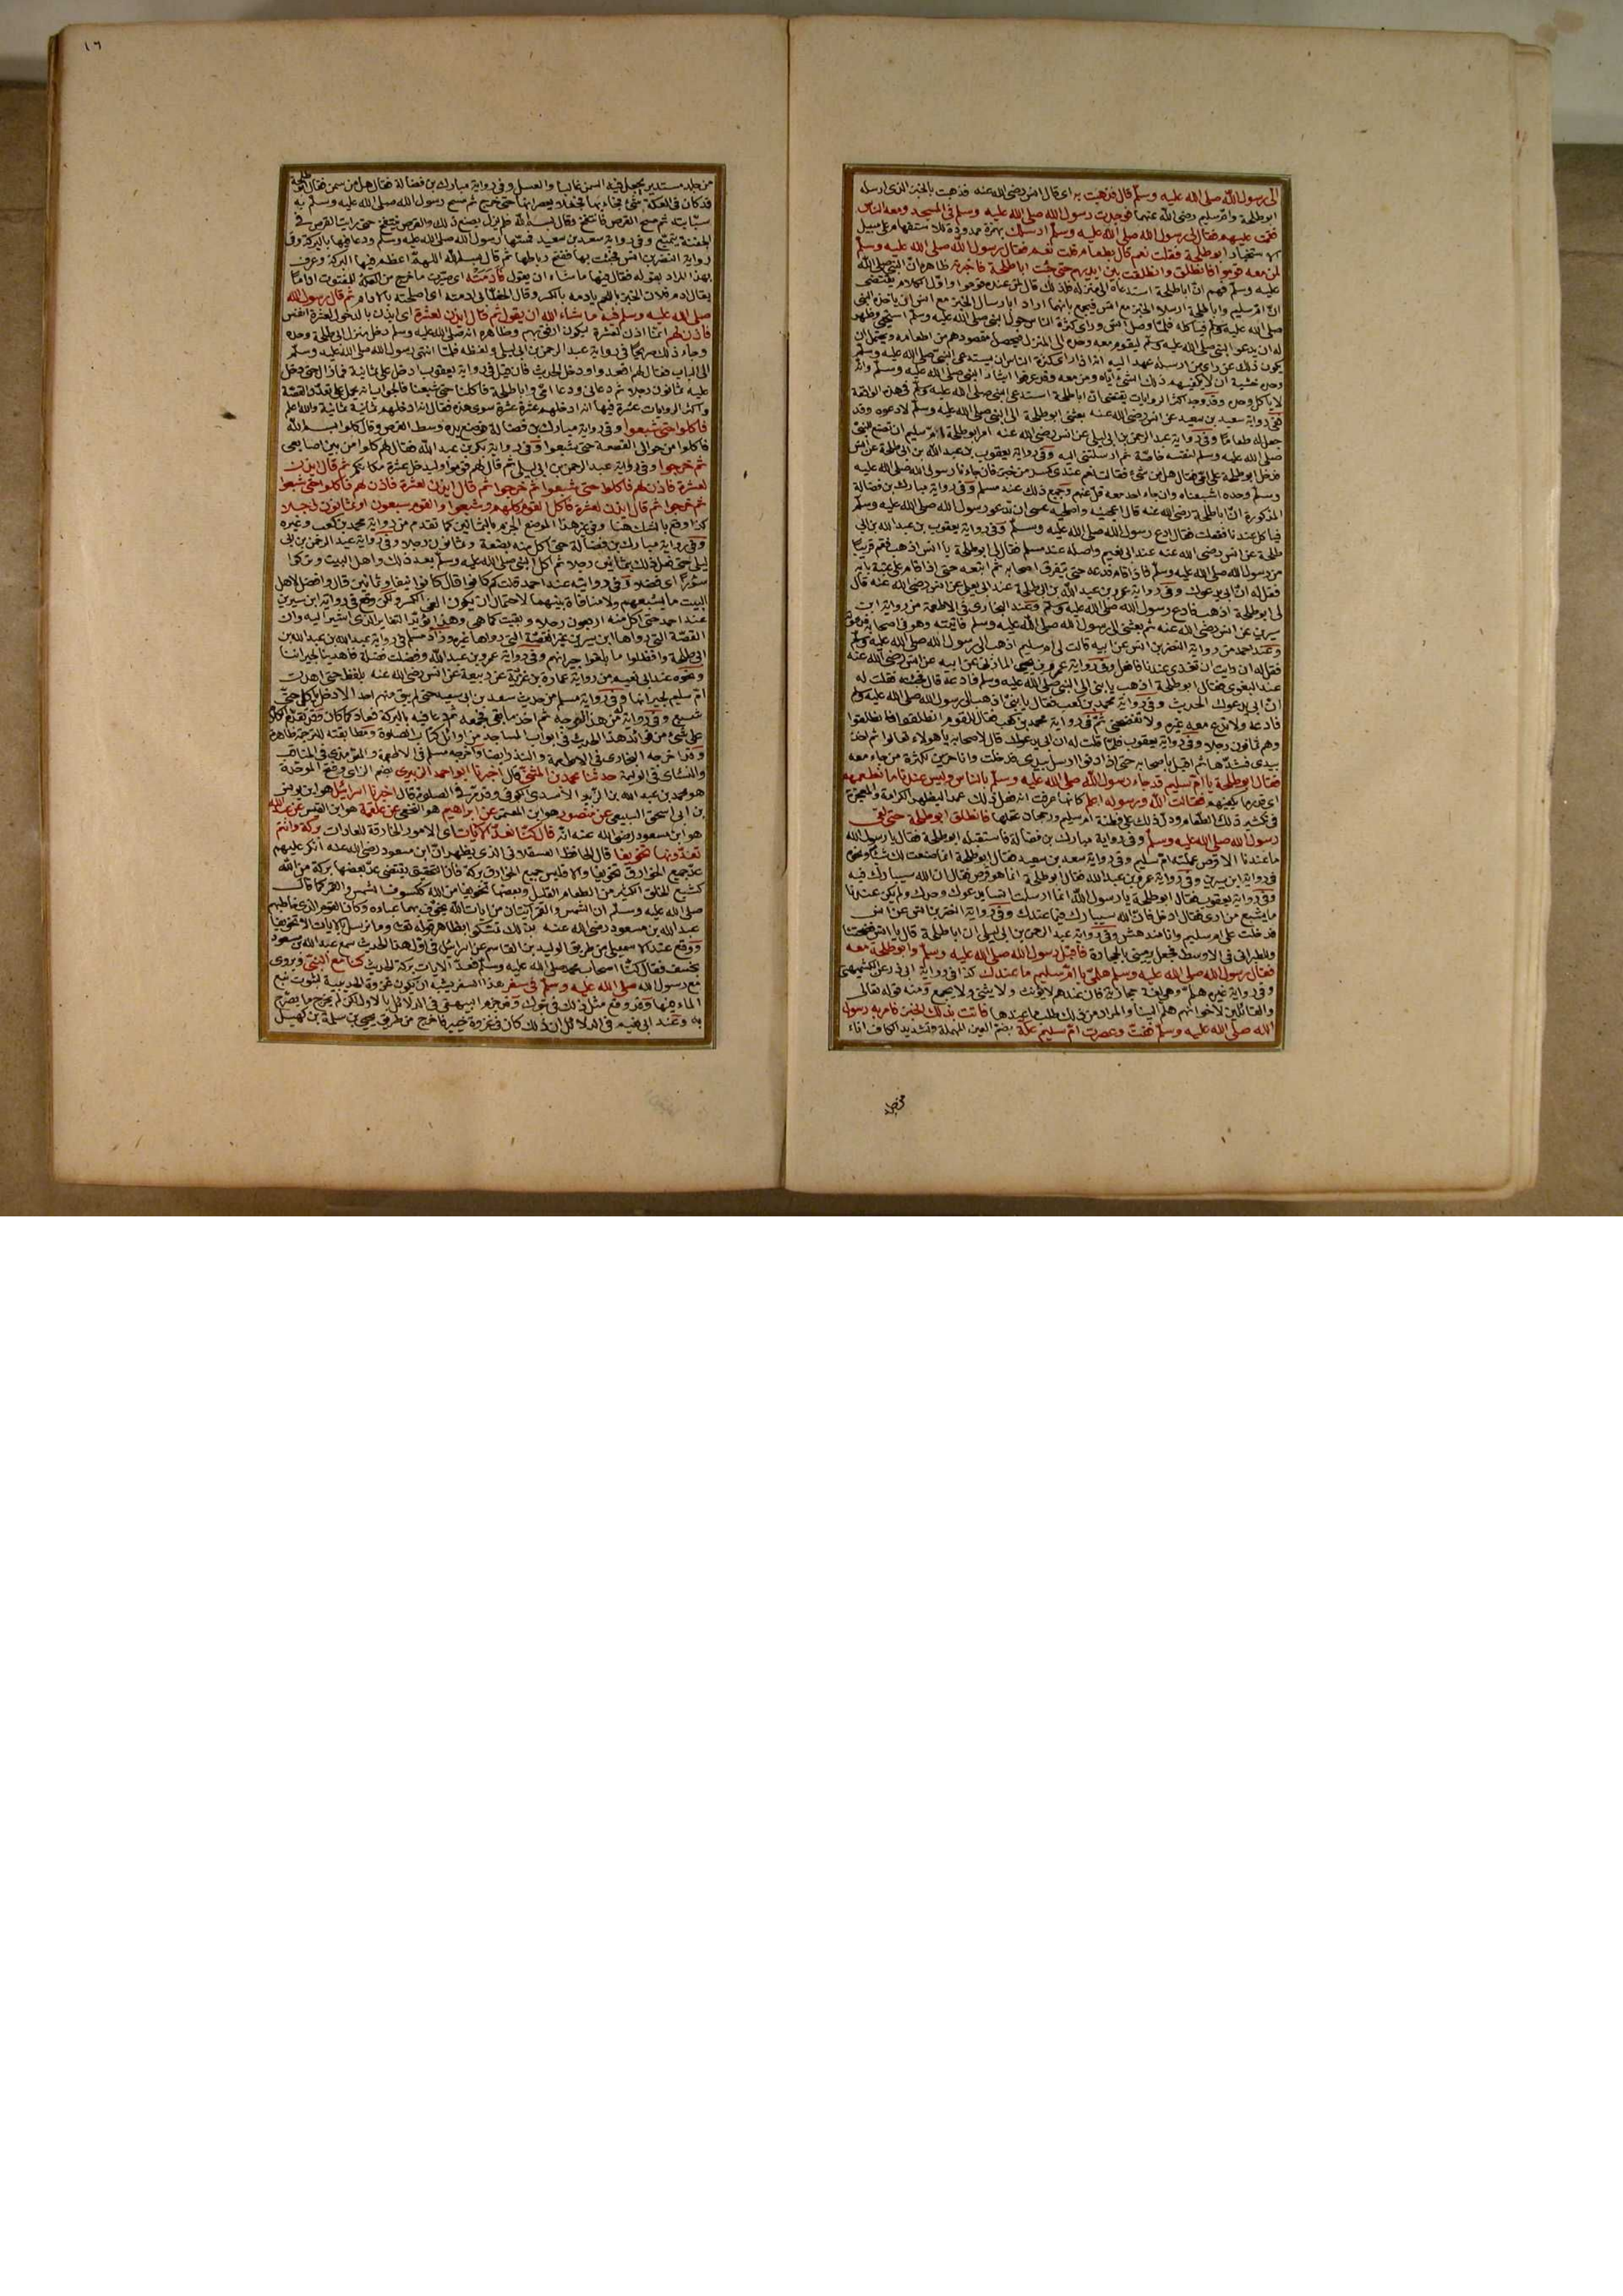 الى رسول الله صلى الله عليه وسلم قال فذهبت به اى قال انس رضى الله عنه فذهبت بالخبز الذى ارسله
ابو طلحة وام سليم رضى الله عنهما فوجدت رسول الله صلى الله عليه وسلم فى المسجد ومعه الناس
فقمت عليهم فقال لى رسول الله صلى الله عليه وسلم ارسلك بهمزة ممدودة للاستفهام على سبيل
الاستخبار ابو طلحة فقلت نعم قال بطعام قلت نعم فقال رسول الله صلى الله عليه وسلم
لمن معه قوموا فانطلق وانطلقت بين ايديهم حتى جئت ابا طلحة فاخبرته ظاهره ان النبى صلى الله
عليه وسلم فهم ان ابا طلحة استدعاه الى منزله فلذلك قال لمن عنده قوموا واول الكلام يقتضى
ان ام سليم وابا طلحة ارسلا الخبز مع انس فيجمع بانهما ارادا بارسال الخبز مع انس ان ياخذه النبى
صلى الله عليه وسلم فياكله فلما وصل انس وراى كثرة الناس حول النبى صلى الله عليه وسلم استحيى وظهر
له ان يدعو النبى صلى الله عليه وسلم ليقوم معه وحده الى المنزل فيحصل مقصودهم من اطعامه ويحتمل ان
يكون ذلك عن راى من ارسله عهد اليه انه اذا راى كثرة الناس ان يستدعى النبى صلى الله عليه وسلم
وحده خشية ان لا يكفيهم ذلك الشئ اياه ومن معه وقد عرفوا ايثار النبى صلى الله عليه وسلم وانه
لا ياكل وحده وقد وجد اكثر الروايات يقتضى ان ابا طلحة استدعى النبى صلى الله عليه وسلم فى هذه الواقعة
ففى رواية سعيد بن سعيد عن انس رضى الله عنه بعثنى ابو طلحة الى النبى صلى الله عليه وسلم لادعوه وقد
جعل له طعاما وفى رواية عبد الرحمن بن ابى ليلى عن انس رضى الله عنه امر ابو طلحة ام سليم ان تصنع للنبى
صلى الله عليه وسلم لنفسه خاصة ثم ارسلتنى اليه وفى رواية يعقوب بن عبد الله بن ابى طلحة عن انس
فدخل ابو طلحة على امى فقال هل من شئ فقالت نعم عندى كسر من خبز فان جاءنا رسول الله صلى الله عليه
وسلم وحده اشبعناه وان جاء احد معه قل عنهم وجميع ذلك عند مسلم وفى رواية مبارك بن فضالة
المذكورة ان ابا طلحة رضى الله عنه قال اعجنيه واصلحيه عسى ان ندعو رسول الله صلى الله عليه وسلم
فياكل عندنا ففعلت فقال ادع رسول الله صلى الله عليه وسلم وفى رواية يعقوب بن عبد الله بن ابى
طلحة عن انس رضى الله عنه عند ابى نعيم واصله عند مسلم فقال لى ابو طلحة يا انس اذهب فقم قريبا
من رسول الله صلى الله عليه وسلم فاذا قام فدعه حتى يتفرق اصحابه ثم اتبعه حتى اذا قام على عتبة بابه
فقل له ان ابى يدعوك وفى رواية عمرو بن عبد الله بن ابى طلحة عند ابى يعلى عن انس رضى الله عنه قال
لى ابو طلحة اذهب فادع رسول الله صلى الله عليه وسلم وعند البخارى فى الاطعمة من رواية ابن
سيرين عن انس رضى الله عنه ثم بعثنى الى رسول الله صلى الله عليه وسلم فاتيته وهو فى اصحابه فدعوته
وعند احمد من رواية النضر بن انس عن ابيه قالت لى ام سليم اذهب الى رسول الله صلى الله عليه وسلم
فقل له ان رايت ان تغدى عندنا فافعل وفى رواية عمرو بن يحيى المازنى عن ابيه عن انس رضى الله عنه
عند البغوى فقال ابو طلحة اذهب يا بنى الى النبى صلى الله عليه وسلم فادعه قال فجئته فقلت له
ان ابى يدعوك الحديث وفى رواية محمد بن كعب فقال يا بنى اذهب الى رسول الله صلى الله عليه وسلم
فادعه ولا تدع معه غيره ولا تفضحنى ثم فى رواية محمد بن كعب فقال للقوم انطلقوا فانطلقوا
وهم ثمانون رجلا وفى رواية يعقوب فلما قلت له ان ابى يدعوك قال لاصحابه يا هولاء تعالوا ثم اخذ
بيدى فشدها ثم اقبل باصحابه حتى اذا دنوا ارسل بيدى فدخلت وانا حزين لكثرة من جاء معه
فقال ابو طلحة يا ام سليم قد جاء رسول الله صلى الله عليه وسلم بالناس وليس عندنا ما نطعمهم
اى قدر ما يكفيهم فقالت الله ورسوله اعلم كانها عرفت انه فعل ذلك عمدا ليظهر الكرامة والمعجزة
فى تكثير ذلك الطعام ودل ذلك على فطنة ام سليم ورجحان عقلها فانطلق ابو طلحة حتى لقى
رسول الله صلى الله عليه وسلم وفى رواية مبارك بن فضالة فاستقبله ابو طلحة فقال يا رسول الله
ما عندنا الا قرص عملته ام سليم وفى رواية سعد بن سعيد فقال ابو طلحة انما صنعت لك شيئا ونحوه
فى رواية ابن سيرين وفى رواية عمرو بن عبد الله فقال ابو طلحة انما هو قرص فقال ان الله سيبارك فيه
وفى رواية يعقوب فقال ابو طلحة يا رسول الله انما ارسلت انسا يدعوك وحدك ولم يكن عندنا
ما يشبع من ارى فقال ادخل فان الله سيبارك فيما عندك وفى رواية النضر بن انس عن انس
فدخلت على ام سليم وانا مندهش وفى رواية عبد الرحمن بن ابى ليلى ان ابا طلحة قال يا انس فضحتنا
وللطبرانى فى الاوسط فجعل يرمينى بالحجارة فاقبل رسول الله صلى الله عليه وسلم وابو طلحة معه
فقال رسول الله صلى الله عليه وسلم هلمى يا ام سليم ما عندك كذا فى رواية ابى ذر عن الكشميهنى
وفى رواية غيره هلم وهى لغة حجازية فان عندهم لا يؤنث ولا يثنى ولا يجمع ومنه قوله تعالى
والقائلين لاخوانهم هلم الينا والمراد من ذلك طلب ما عندها فاتت بذلك الخبز فامر به رسول
الله صلى الله عليه وسلم ففت وعصرت ام سليم عكة بضم العين المهملة وتشديد الكاف اناء
من جلد
١٦
من جلد مستدير يجعل فيه السمن غالبا والعسل وفى رواية مبارك بن فضالة فقال هل من سمن فقال ابو طلحة
قد كان فى العكة شئ فجاء بها فجعلا يعصرانها حتى خرج ثم مسح رسول الله صلى الله عليه وسلم به
سبابته ثم مسح القرص فانتفخ وقال بسم الله فلم يزل يصنع ذلك والقرص ينتفخ حتى رايت القرص فى
الجفنة يتميع وفى رواية سعد بن سعيد فمسها رسول الله صلى الله عليه وسلم ودعا فيها بالبركة وفى
رواية النضر بن انس فجئت بها ففتح رباطها ثم قال بسم الله اللهم اعظم فيها البركة وعرف
بهذا المراد بقوله فقال فيها ما شاء ان يقول فادمته اى صيرت ما خرج من العكة للمفتوت اداما
يقال ادم فلان الخبز باللحم يادمه بالكسر وقال الخطابى ادمته اى اصلحته بالادام ثم قال رسول الله
صلى الله عليه وسلم فيه ما شاء الله ان يقول ثم قال ايذن لعشرة اى ايذن بالدخول لعشرة انفس
فاذن لهم انما اذن لعشرة ليكون ارفق بهم وظاهره انه صلى الله عليه وسلم دخل منزل ابى طلحة وحده
وجاء ذلك صريحا فى رواية عبد الرحمن بن ابى ليلى ولفظه فلما انتهى رسول الله صلى الله عليه وسلم
الى الباب فقال لهم اقعدوا ودخل الحديث فان قيل فى رواية يعقوب ادخل على ثمانية فمازال حتى دخل
عليه ثمانون رجلا ثم دعانى ودعا امى وابا طلحة فاكلنا حتى شبعنا فالجواب انه يحمل على تعدد القصة
واكثر الروايات عشرة فيها انه ادخلهم عشرة عشرة سوى هذه فقال انه ادخلهم ثمانية ثمانية والله اعلم
فاكلوا حتى شبعوا وفى رواية مبارك بن فضالة فوضع يده وسط القرص وقال كلوا بسم الله
فاكلوا من حوالى القصعة حتى شبعوا وفى رواية بكر بن عبد الله فقال لهم كلوا من بين اصابعى
ثم خرجوا وفى رواية عبد الرحمن بن ابى ليلى ثم قال لهم قوموا وليدخل عشرة مكانكم ثم قال ايذن
لعشرة فاذن لهم فاكلوا حتى شبعوا ثم خرجوا ثم قال ايذن لعشرة فاذن لهم فاكلوا حتى شبعوا
ثم خرجوا ثم قال ايذن لعشرة فاكل القوم كلهم وشبعوا والقوم سبعون او ثمانون رجلا
كذا وقع بالشك هنا وفى غير هذا الموضع الجزم بالثمانين كما تقدم من رواية محمد بن كعب وغيره
وفى رواية مبارك بن فضالة حتى اكل منه بضعة وثمانون رجلا وفى رواية عبد الرحمن بن ابى
ليلى حتى فعل ذلك بثمانين رجلا ثم اكل النبى صلى الله عليه وسلم بعد ذلك واهل البيت وتركوا
سؤرا اى فضلا وفى روايته عند احمد قلت كم كانوا قال كانوا نيفا وثمانين قال وافضل لاهل
البيت ما يشبعهم ولا منافاة بينهما لاحتمال ان يكون الغى الكسر ولكن وقع فى رواية ابن سيرين
عند احمد حتى اكل منه اربعون رجلا وبقيت كما هى وهذا يؤيد التغاير الذى اشير اليه وان
القصة التى رواها ابن سيرين غير القصة التى رواها غيره وزاد مسلم فى رواية عبد الله بن عبد الله بن
ابى طلحة وافضلوا ما بلغوا جيرانهم وفى رواية عمرو بن عبد الله وفضلت فضلة فاهدينا لجيراننا
ونحوه عند ابى نعيم من رواية عمارة بن غزية عن ربيعة عن انس رضى الله عنه بلفظ حتى اهدت
ام سليم لجيرانها وفى رواية مسلم من حديث سعد بن ابى سعيد حتى لم يبق منهم احد الا دخل فاكل حتى
شبع وفى رواية له من هذا الوجه ثم اخذ ما بقى فجمعه ثم دعا فيه بالبركة فعاد كما كان وقد تقدم الكلام
على شئ من فوائد هذا الحديث فى ابواب المساجد من اوائل كتاب الصلوة ومطابقته للترجمة ظاهرة
وقد اخرجه البخارى فى الاطعمة والنذر ايضا واخرجه مسلم فى الاطعمة والترمذى فى المناقب
والنسائى فى الوليمة حدثنا محمد بن المثنى قال اخبرنا ابو احمد الزبيرى بضم الزاى وفتح الموحدة
هو محمد بن عبد الله بن الزبير الاسدى الكوفى وقد مر فى الصلوة قال اخبرنا اسرائيل هو ابن يونس
بن ابى اسحق السبيعى عن منصور هو ابن المعتمر عن ابراهيم هو النخعى عن علقمة هو ابن القيس عن عبد الله
هو ابن مسعود رضى الله عنه انه قال كنا نعد الايات اى الامور الخارقة للعادات بركة وانتم
تعدونها تخويفا قال الحافظ العسقلانى الذى يظهر ان ابن مسعود رضى الله عنه انكر عليهم
عد جميع الخوارق تخويفا والا فليس جميع الخوارق بركة فان التحقيق يقتضى عد بعضها بركة من الله
كشبع الخلق الكثير من الطعام القليل وبعضها تخويفا من الله ككسوف الشمس والقمر كما قال
صلى الله عليه وسلم ان الشمس والقمر ايتان من ايات الله يخوف بهما عباده وكان القوم الذين خاطبهم
عبد الله بن مسعود رضى الله عنه بذلك تمسكوا بظاهر قوله تعالى وما نرسل بالايات الا تخويفا
ووقع عند الاسمعيلى من طريق الوليد بن القاسم عن اسرائيل فى اول هذا الحديث سمع عبد الله بن مسعود
بخسف فقال كنا اصحاب محمد صلى الله عليه وسلم نعد الايات بركة الحديث كنا مع النبى ويروى
مع رسول الله صلى الله عليه وسلم فى سفر هذا السفر يشبه ان يكون غزوة الحديبية لثبوت نبع
الماء فيها وقد وقع مثل ذلك فى تبوك وقد جزم البيهقى فى الدلائل بالاول لكن لم يخرج ما يصرح
به وعند ابى نعيم فى الدلائل ان ذلك كان فى غزوة خيبر فاخرج من طريق يحيى بن سلمة بن كهيل